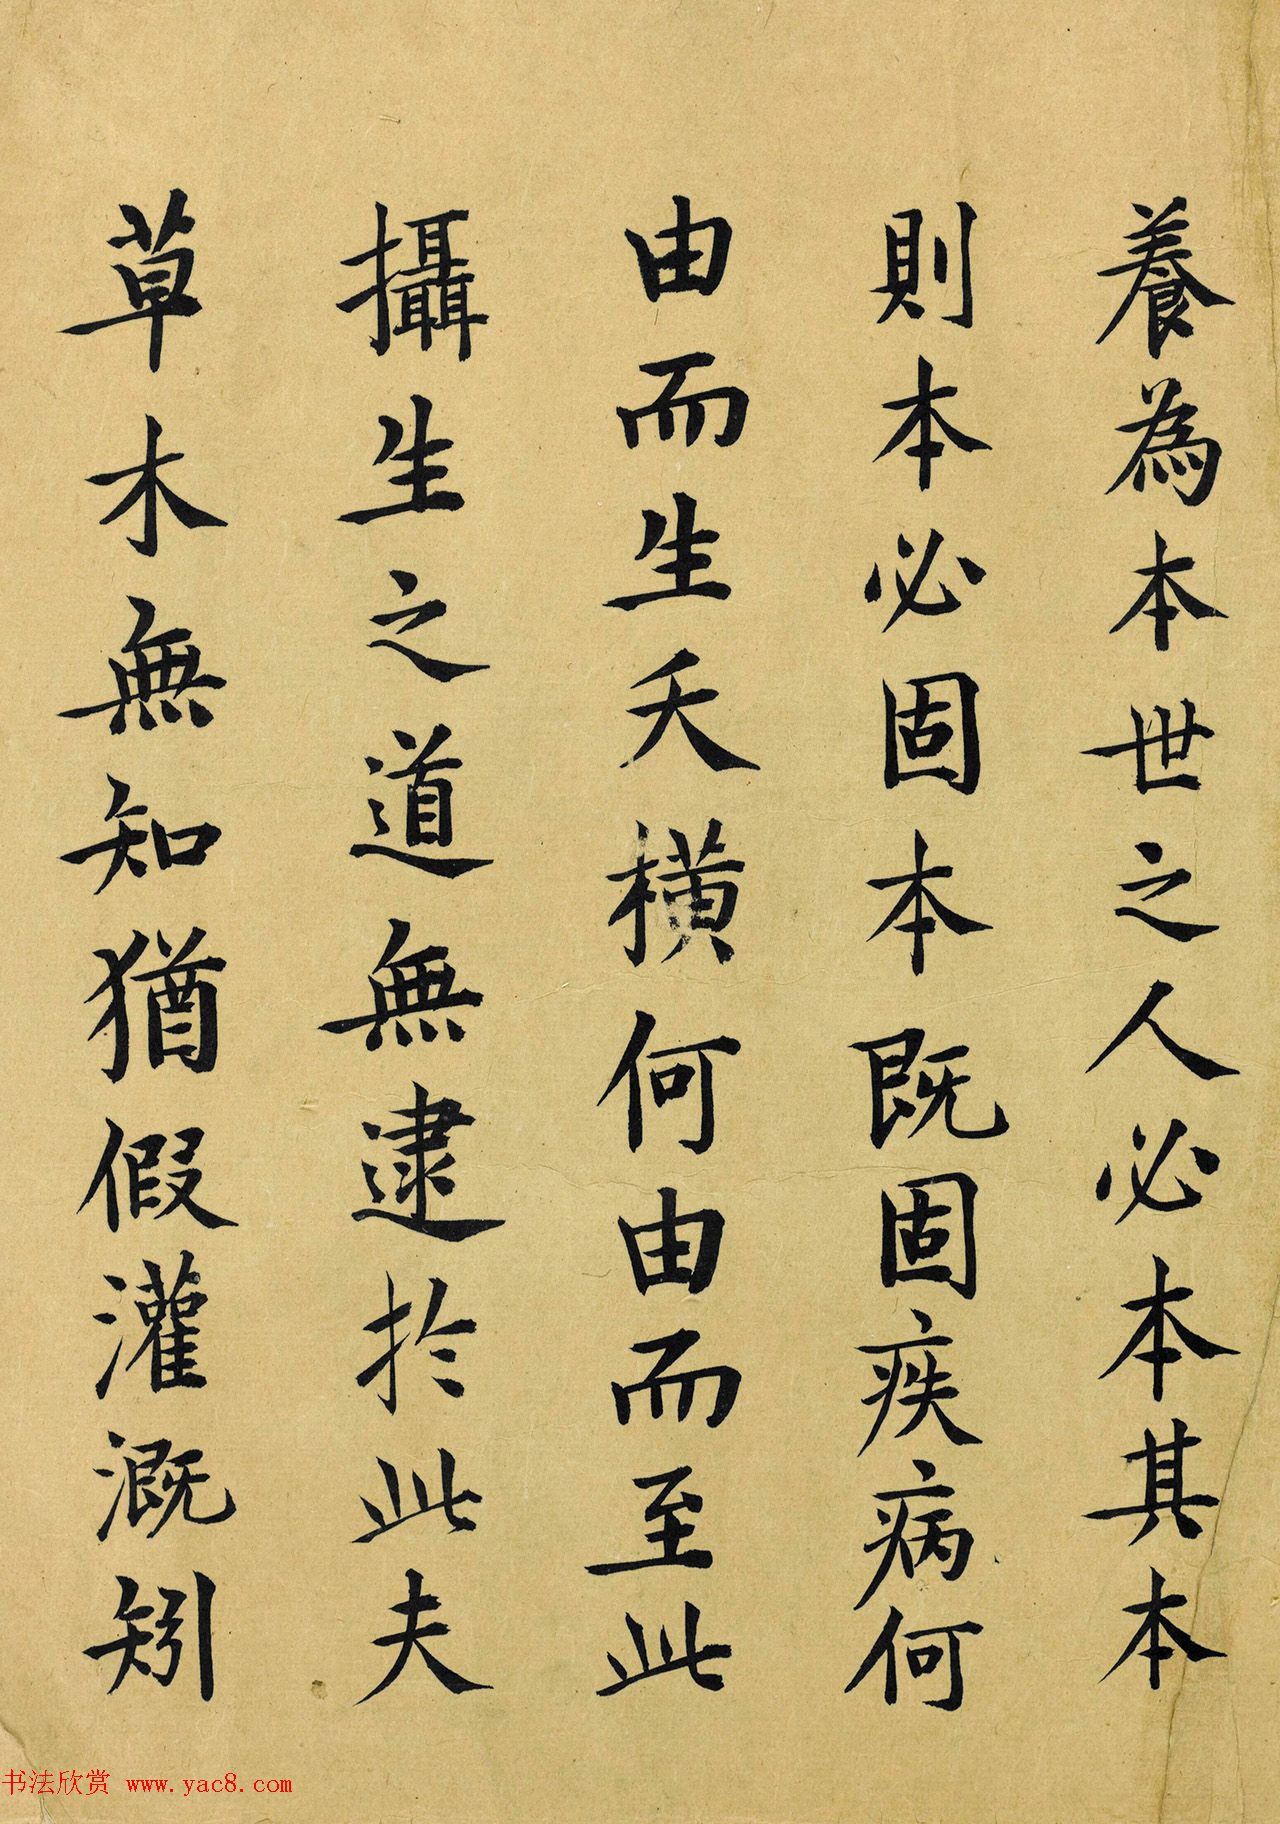 養為本世之人必本其本
則本必固本既固疾病何
由而生夭橫何由而至此
攝生之道無逮於此夫
草木無知猶假灌溉矧
书法欣赏 www.yac8.com